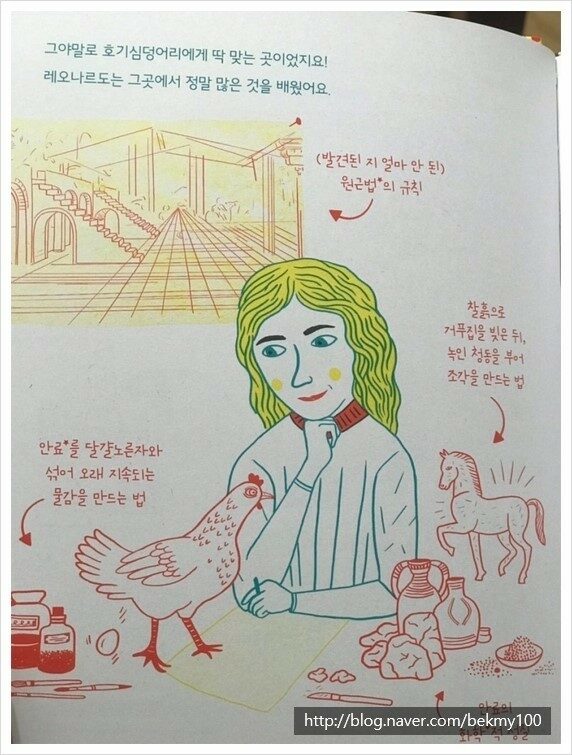 그야말로 호기심덩어리에게 딱 맞는 곳이었지요!
레오나르도는 그곳에서 정말 많은 것을 배웠어요.
(발견된 지 얼마 안 된)
원근법*의 규칙
찰흙으로
거푸집을 빚은 뒤,
녹인 청동을 부어
조각을 만드는 법
안료*를 달걀노른자와
섞어 오래 지속되는
물감을 만드는 법
안료의
화학*적 성질
http://blog.naver.com/bekmy100